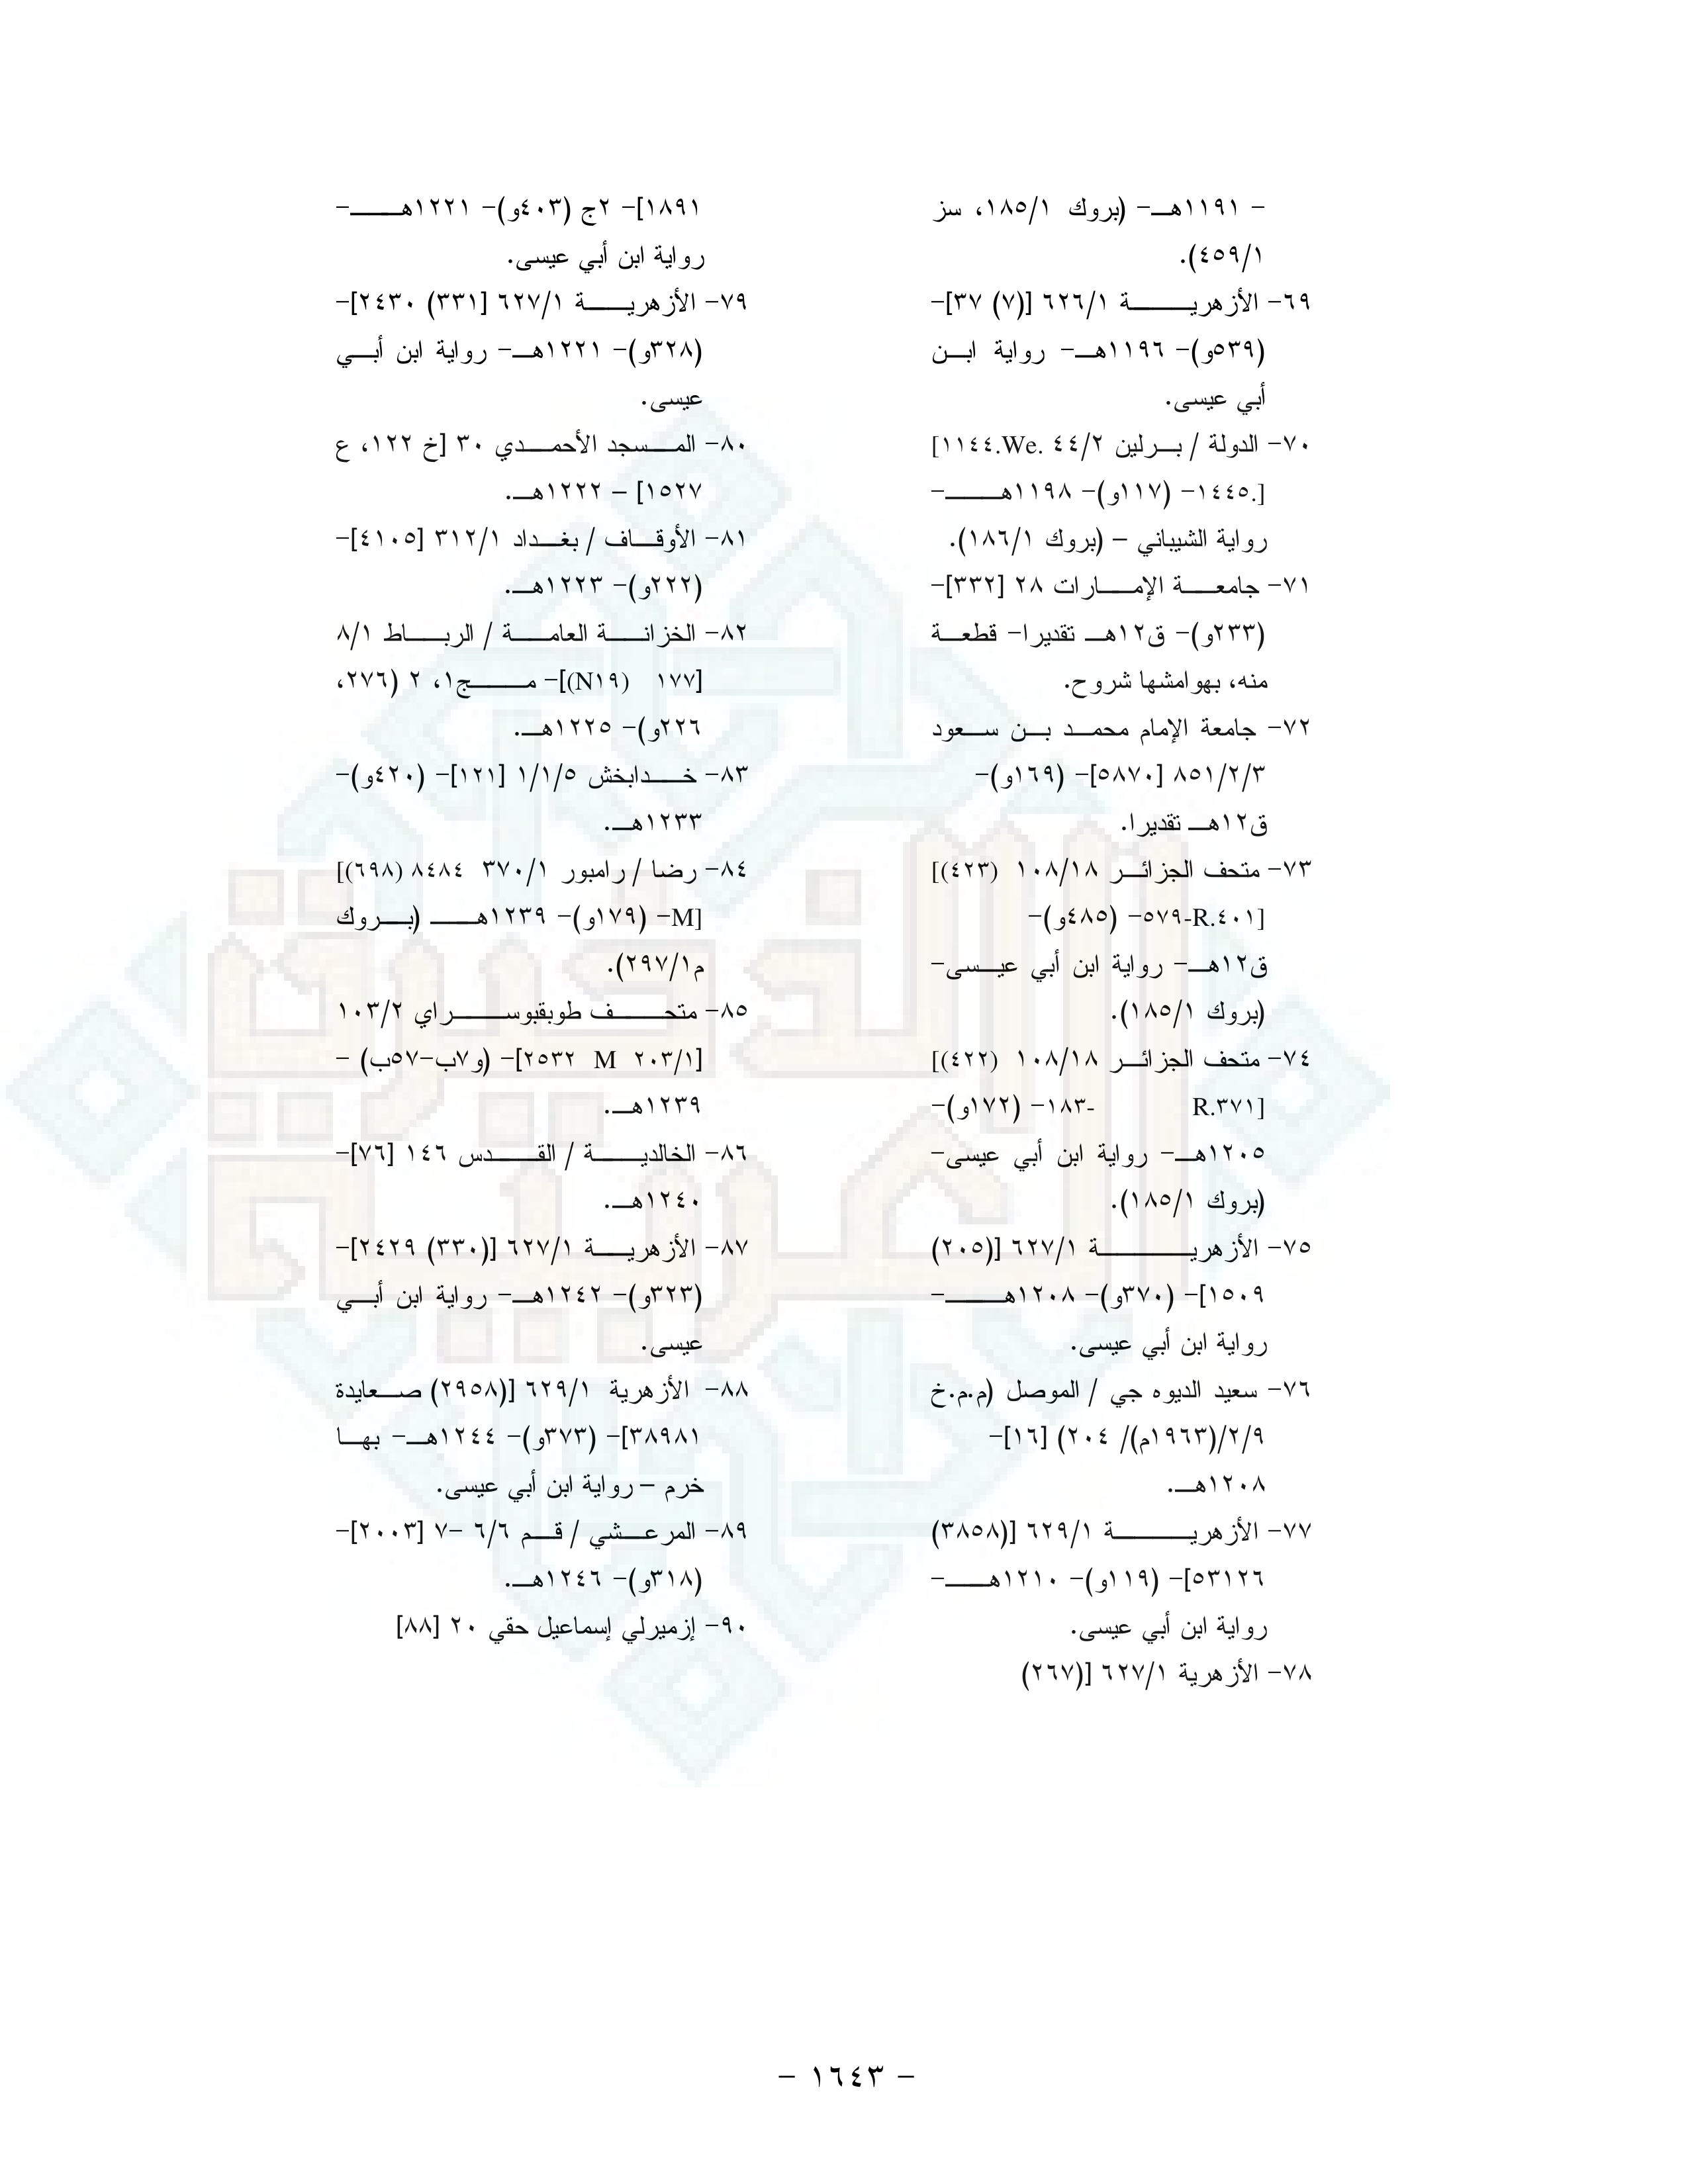 - ١١٩١هـ- (بروك ١/١٨٥، سز
١/٤٥٩).
٦٩- الأزهرية ١/٦٢٦ [(٧) ٣٧]-
(٥٣٩و)- ١١٩٦هـ- رواية ابن
أبي عيسى.
٧٠- الدولة / برلين ٢/٤٤ .We.١١٤٤]
[.١٤٤٥- (١١٧و)- ١١٩٨هـ-
رواية الشيباني – (بروك ١/١٨٦).
٧١- جامعة الإمارات ٢٨ [٣٣٢]-
(٢٣٣و)- ق١٢هـ تقديرا- قطعة
منه، بهوامشها شروح.
٧٢- جامعة الإمام محمد بن سعود
٣/٢/٨٥١ [٥٨٧٠]- (١٦٩و)-
ق١٢هـ تقديرا.
٧٣- متحف الجزائر ١٨/١٠٨ (٤٢٣)]
[R.٤٠١-٥٧٩- (٤٨٥و)-
ق١٢هـ- رواية ابن أبي عيسى-
(بروك ١/١٨٥).
٧٤- متحف الجزائر ١٨/١٠٨ (٤٢٢)]
[R.٣٧١ -١٨٣- (١٧٢و)-
١٢٠٥هـ- رواية ابن أبي عيسى-
(بروك ١/١٨٥).
٧٥- الأزهرية ١/٦٢٧ [(٢٠٥)
١٥٠٩]- (٣٧٠و)- ١٢٠٨هـ-
رواية ابن أبي عيسى.
٧٦- سعيد الديوه جي / الموصل (م.م.خ
٢/٩/(١٩٦٣م)/ ٢٠٤) [١٦]-
١٢٠٨هـ.
٧٧- الأزهرية ١/٦٢٩ [(٣٨٥٨)
٥٣١٢٦]- (١١٩و)- ١٢١٠هـ-
رواية ابن أبي عيسى.
٧٨- الأزهرية ١/٦٢٧ [(٢٦٧)
١٨٩١]- ٢ج (٤٠٣و)- ١٢٢١هـ-
رواية ابن أبي عيسى.
٧٩- الأزهرية ١/٦٢٧ [(٣٣١) ٢٤٣٠]-
(٣٢٨و)- ١٢٢١هـ- رواية ابن أبي
عيسى.
٨٠- المسجد الأحمدي ٣٠ [خ ١٢٢، ع
١٥٢٧] – ١٢٢٢هـ.
٨١- الأوقاف / بغداد ١/٣١٢ [٤١٠٥]-
(٢٢٢و)- ١٢٢٣هـ.
٨٢- الخزانة العامة / الرباط ١/٨
[١٧٧ (N١٩)]- مج١، ٢ (٢٧٦،
٢٢٦و)- ١٢٢٥هـ.
٨٣- خدابخش ١/١/٥ [١٢١]- (٤٢٠و)-
١٢٣٣هـ.
٨٤- رضا / رامبور ١/٣٧٠ ٨٤٨٤ (٦٩٨)]
[M- (١٧٩و)- ١٢٣٩هـ (بروك
م١/٢٩٧).
٨٥- متحف طوبقبوسراي ٢/١٠٣
[٢٥٣٢ M ٢٠٣/١]- (و٧ب-٥٧ب) -
١٢٣٩هـ.
٨٦- الخالدية / القدس ١٤٦ [٧٦]-
١٢٤٠هـ.
٨٧- الأزهرية ١/٦٢٧ [(٣٣٠) ٢٤٢٩]-
(٣٢٣و)- ١٢٤٢هـ- رواية ابن أبي
عيسى.
٨٨- الأزهرية ١/٦٢٩ [(٢٩٥٨) صعايدة
٣٨٩٨١]- (٣٧٣و)- ١٢٤٤هـ- بها
خرم – رواية ابن أبي عيسى.
٨٩- المرعشي / قم ٦/٦ -٧ [٢٠٠٣]-
(٣١٨و)- ١٢٤٦هـ.
٩٠- إزميرلي إسماعيل حقي ٢٠ [٨٨]
الذخيرة
العربية
- ١٦٤٣ -